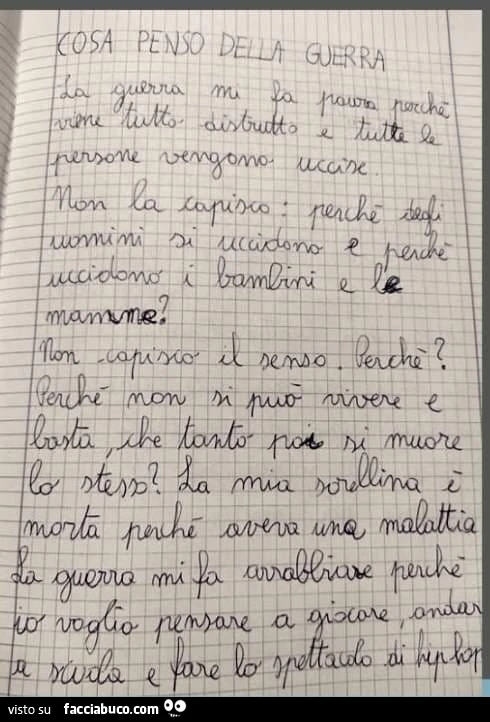 COSA PENSO DELLA GUERRA
La guerra mi fa paura perché
viene tutto distrutto e tutte le
persone vengono uccise.
Non la capisco: perché degli
uomini si uccidono e perché
uccidono i bambini e le
mamme?
Non capisco il senso. Perché?
Perché non si può vivere e
basta, che tanto poi si muore
lo stesso? La mia sorellina è
morta perché aveva una malattia
La guerra mi fa arrabbiare perché
io voglio pensare a giocare, andar
a scuola e fare lo spettacolo di hip hop
visto su facciabuco.com